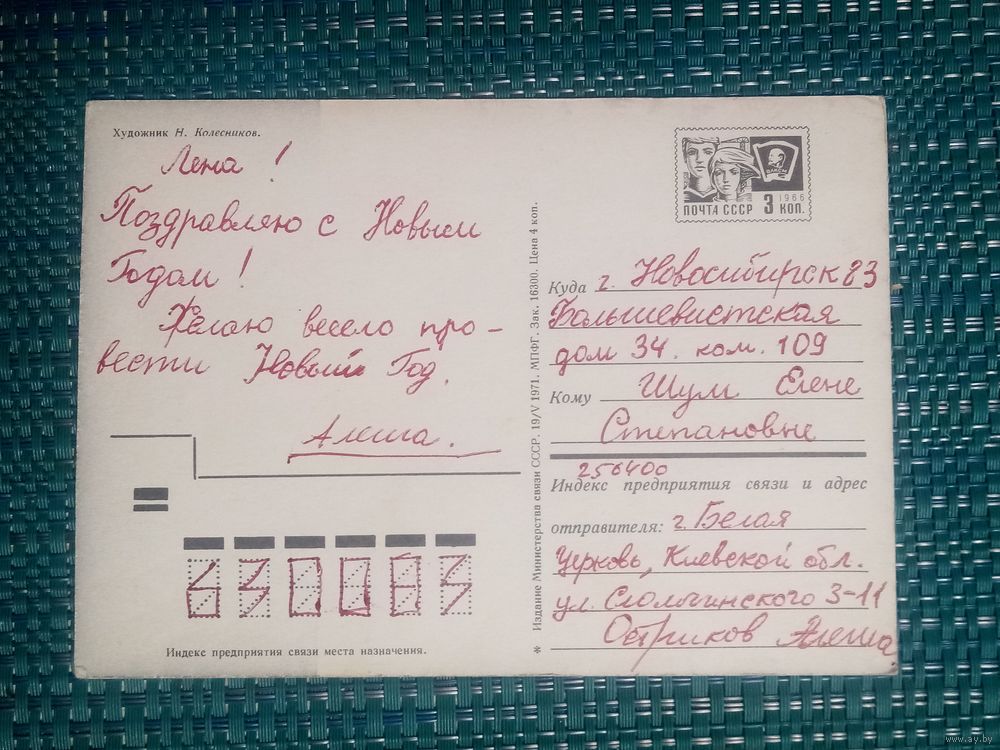 Художник Н. Колесников.
Лена!
Поздравляю с Новым
Годом!
Желаю весело про-
вести Новый Год.
Алеша.
630083
Индекс предприятия связи места назначения.
* Издание Министерства связи СССР. 19/V 1971. МПФГ. Зак. 16300. Цена 4 коп.
ПОЧТА СССР 3 КОП.
1966
ВЛКСМ
Куда г. Новосибирск 83
Большевистская
дом 34. ком. 109
Кому Шум Елене
Степановне
256400
Индекс предприятия связи и адрес
отправителя: г. Белая
Церковь, Киевской обл.
ул. 3-11
Остриков Алеша
www.ay.by